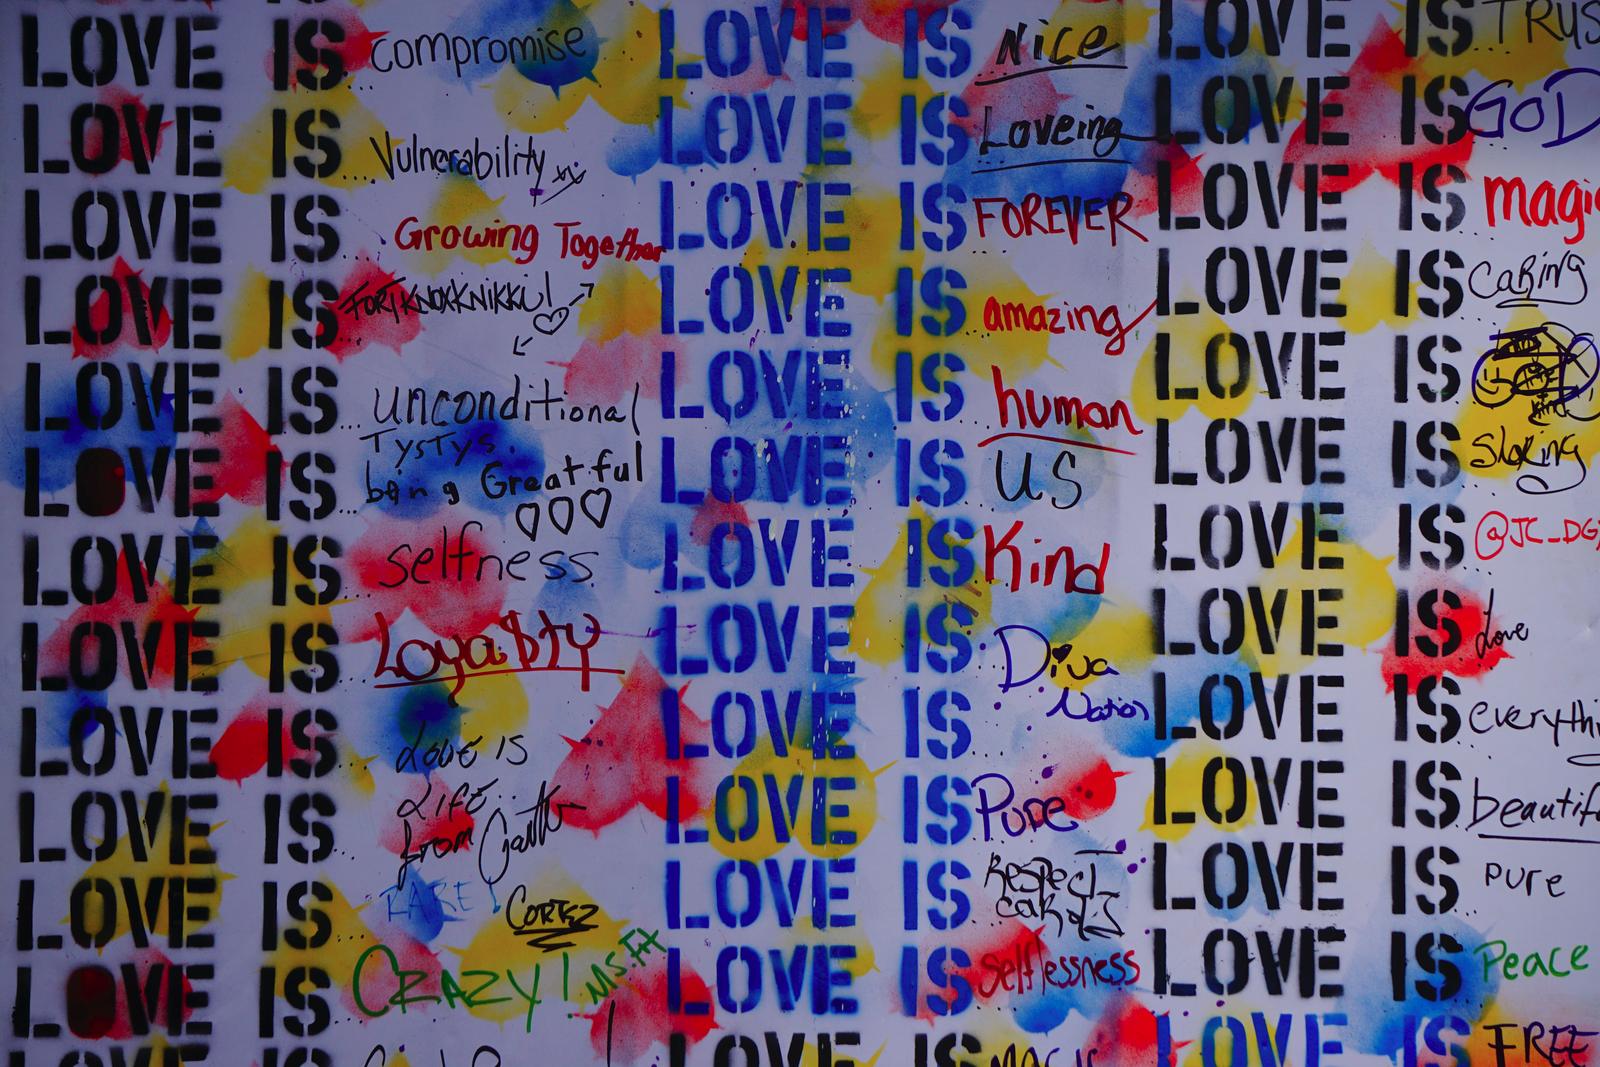 LOVE IS... compromise
LOVE IS... Vulnerability
LOVE IS... Growing Together
LOVE IS... FORTKNOXKNIKKI!
LOVE IS... unconditional
TYSTYS.
LOVE IS... being Greatful
LOVE IS... selfness
LOVE IS... Loya$ty
LOVE IS... Love is
LIFE...
LOVE IS... from
LOVE IS... RARE! CORTEZ
LOVE IS... CRAZY! Ms. FH
LOVE IS
LOVE IS... Nice
LOVE IS... Loveing
LOVE IS... FOREVER
LOVE IS... amazing
LOVE IS... human
LOVE IS... US
LOVE IS... Kind
LOVE IS... Diva
Nation
LOVE IS...
LOVE IS... Pure
LOVE IS... RESPECT
LOVE IS... selflessness
LOVE IS MAGIC
LOVE IS... TRUS
LOVE IS... GOD
LOVE IS... magic
LOVE IS... CARING
LOVE IS... kind
LOVE IS... sharing
LOVE IS... @JC_DG
LOVE IS... Love
LOVE IS... everythi
LOVE IS... beautif
LOVE IS... PURE
LOVE IS... Peace
LOVE IS... FREE